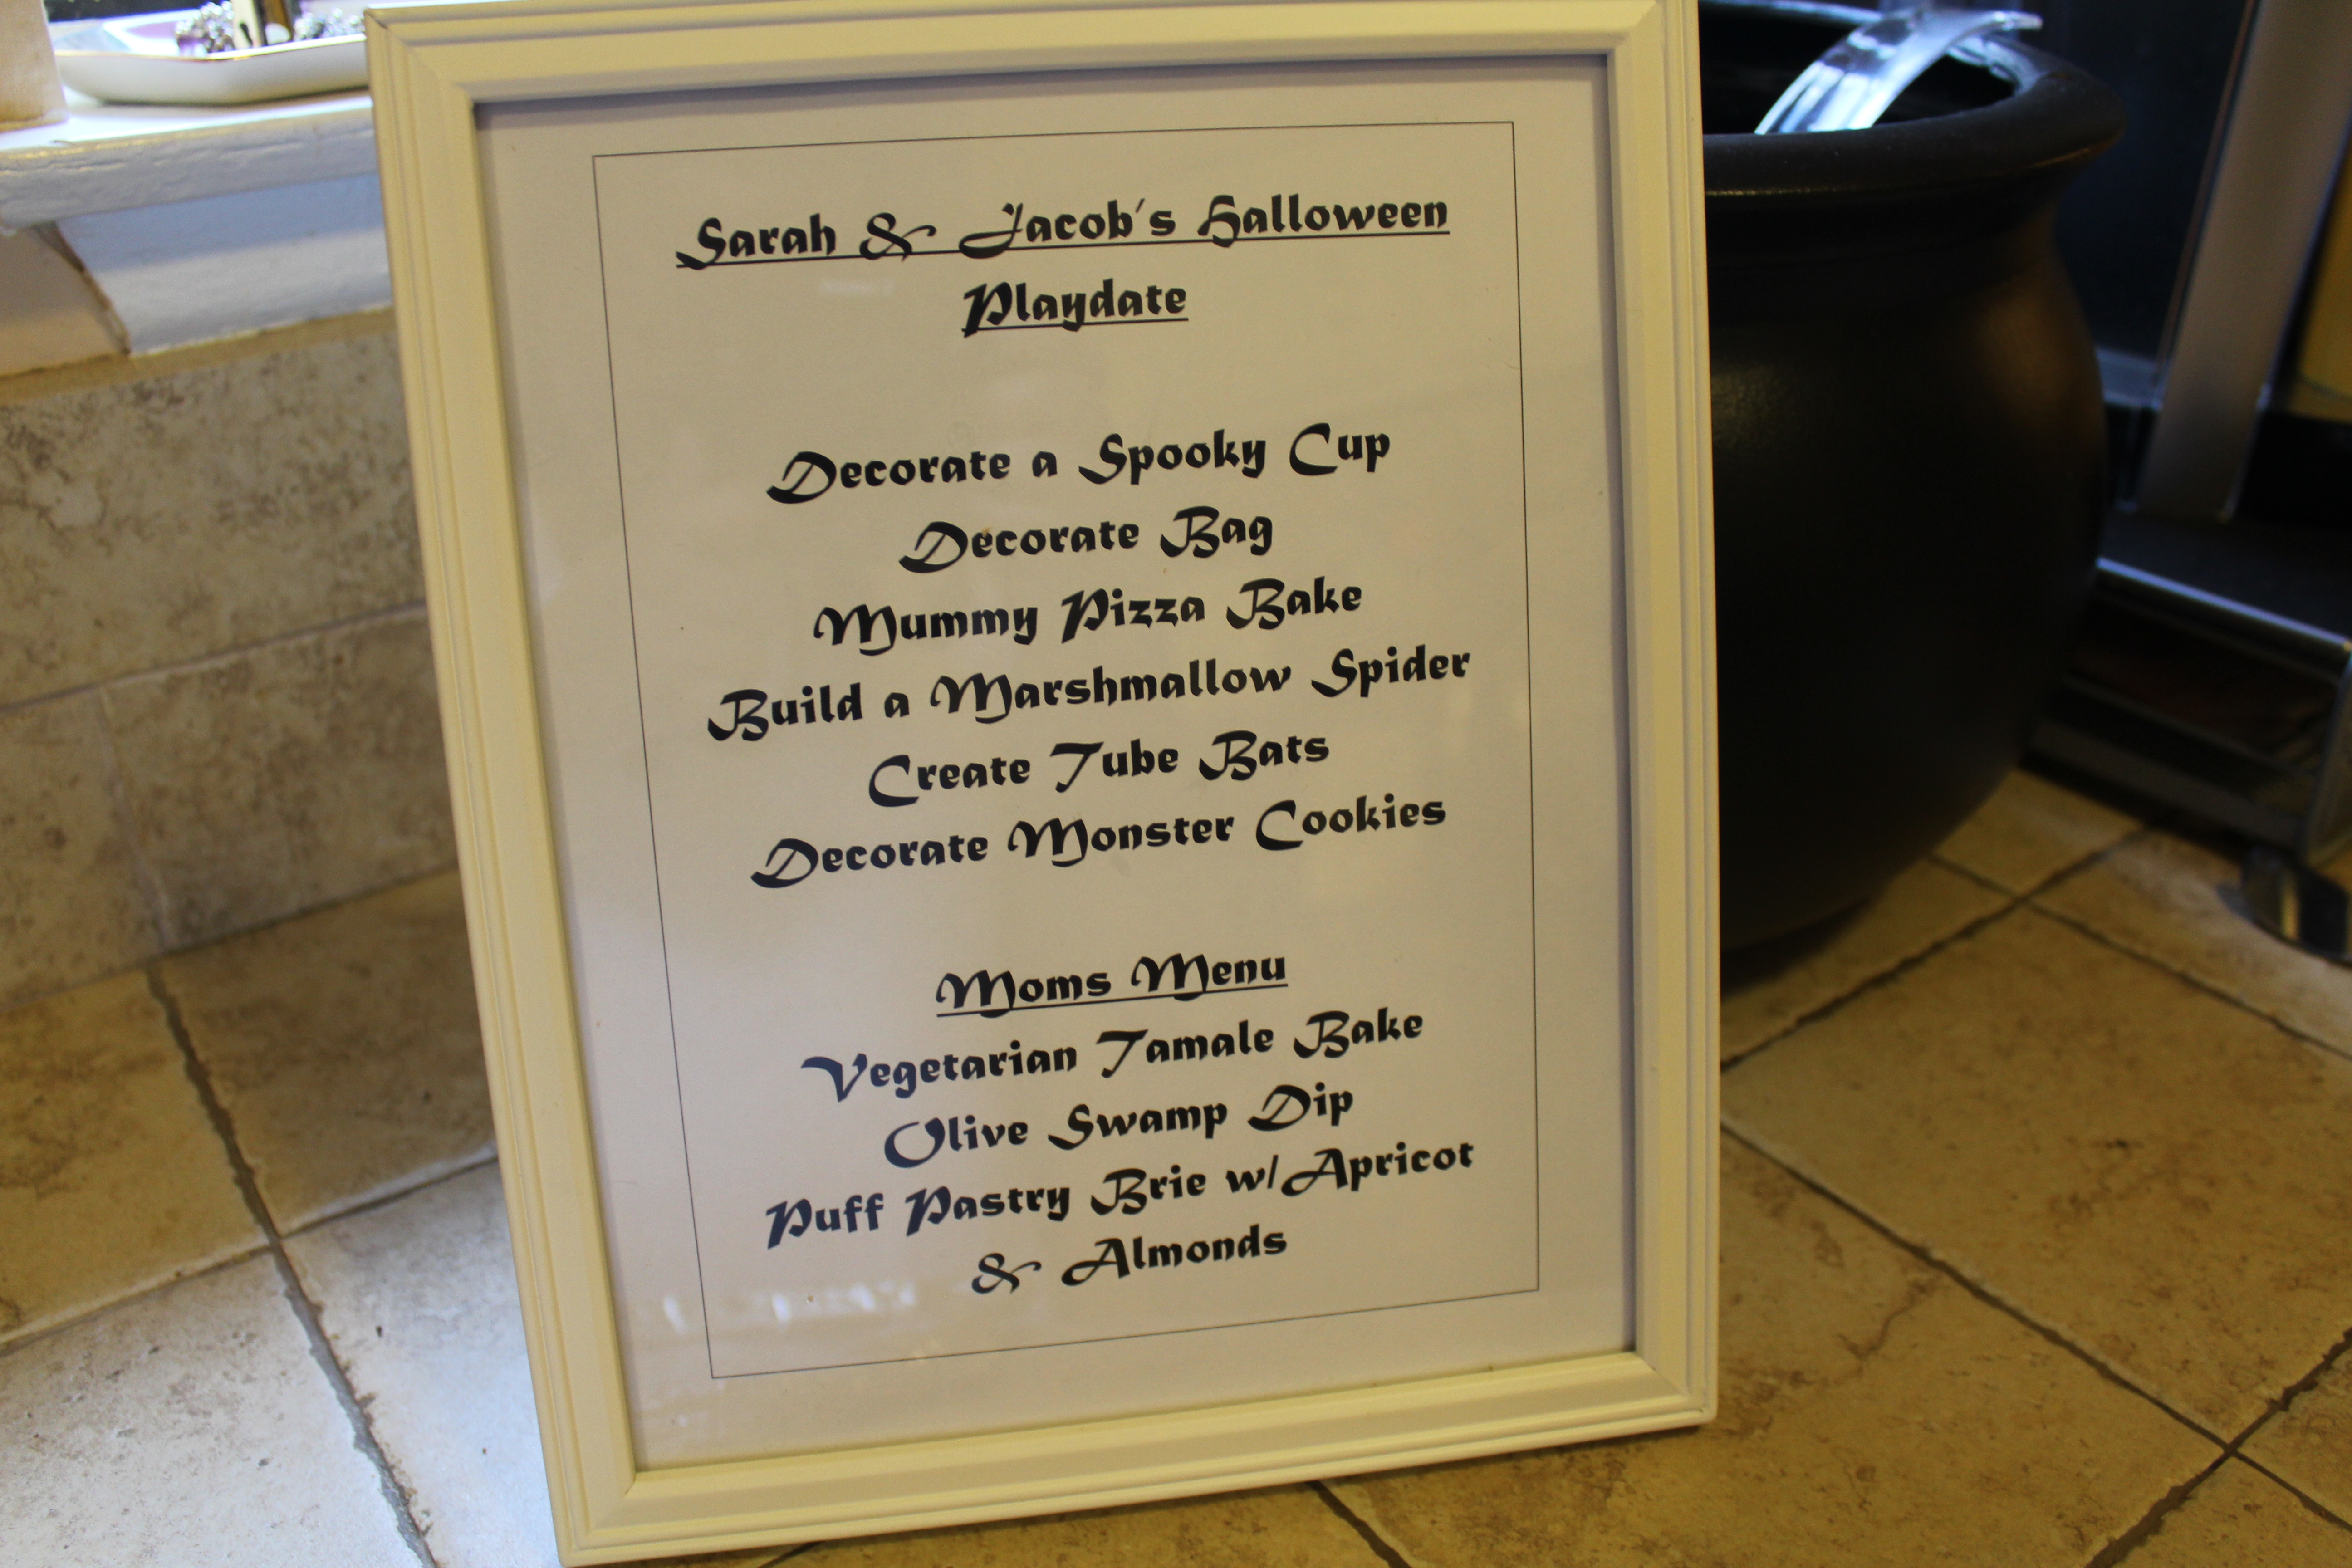 Sarah & Jacob's Halloween
Playdate
Decorate a Spooky Cup
Decorate Bag
Mummy Pizza Bake
Build a Marshmallow Spider
Create Tube Bats
Decorate Monster Cookies
Moms Menu
Vegetarian Tamale Bake
Olive Swamp Dip
Puff Pastry Brie w/Apricot
& Almonds